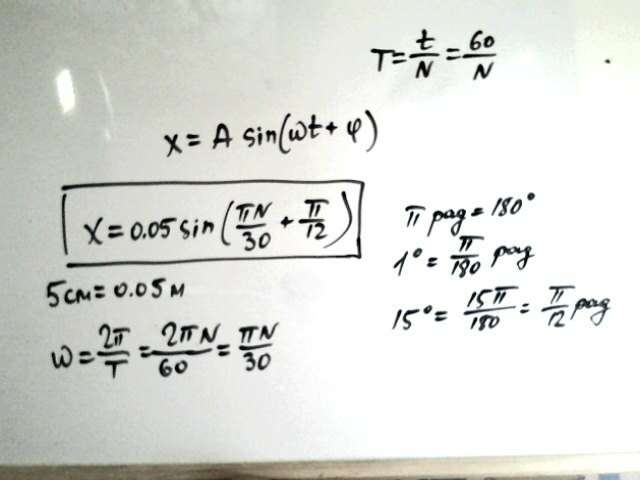 T = t/N = 60/N
x = A sin(ωt + φ)
x = 0.05 sin(πN/30 + π/12)
5 см = 0.05 м
ω = 2π/T = 2πN/60 = πN/30
π рад = 180°
1° = π/180 рад
15° = 15π/180 = π/12 рад